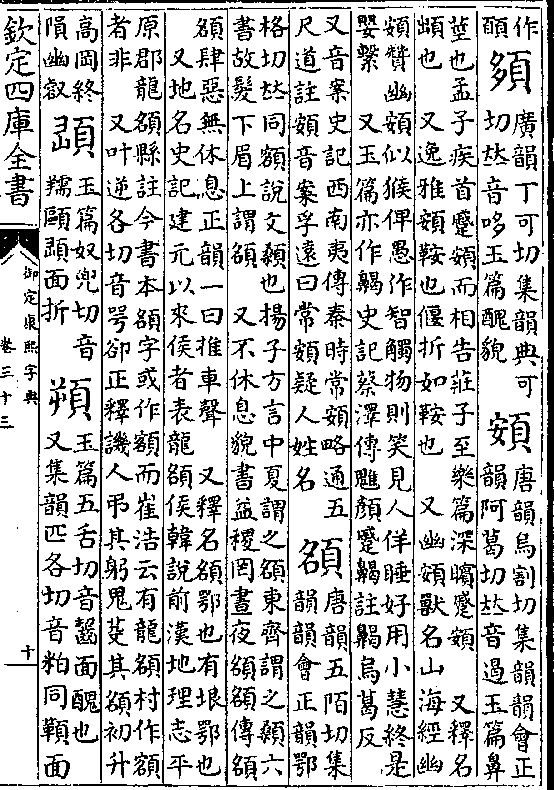 作
頤
䫂
廣韻丁可切集韻典可
切𠀤音哆玉篇醜貌
頞
唐韻烏割切集韻韻會正
韻阿葛切𠀤音遏玉篇鼻
莖也孟子疾首蹙頞而相告莊子至樂篇深矉蹙頞 又釋名
也 又逸雅頞鞍也偃折如鞍也 又幽頞獸名山海經幽
頞贊幽頞似猴俾愚作智觸物則笑見人佯睡好用小慧終是
嬰繫 又玉篇亦作齃史記蔡澤傳魋顏蹙齃註齃烏葛反
又音案史記西南夷傳秦時常頞略通五
尺道註頞音案孚遠曰常頞疑人姓名
頟
唐韻五陌切集
韻韻會正韻鄂
格切𠀤同額說文顙也揚子方言中夏謂之頟東齊謂之顙六
書故髮下眉上謂頟 又不休息貌書益稷罔晝夜頟頟傳頟
頟肆惡無休息正韻一曰推車聲 又釋名頟鄂也有垠鄂也
又地名史記建元以來侯者表龍頟侯韓說前漢地理志平
原郡龍頟縣註今書本頟字或作額而崔浩云有龍頟村作額
者非 又叶逆各切音咢郤正釋譏人弔其躬鬼芟其頟初升
高岡終
隕幽叡
玉篇奴兜切音
羺 面折
玉篇五舌切音齧面醜也
又集韻匹各切音粕同 面
欽定四庫全書
御定康熙字典
卷三十三
十